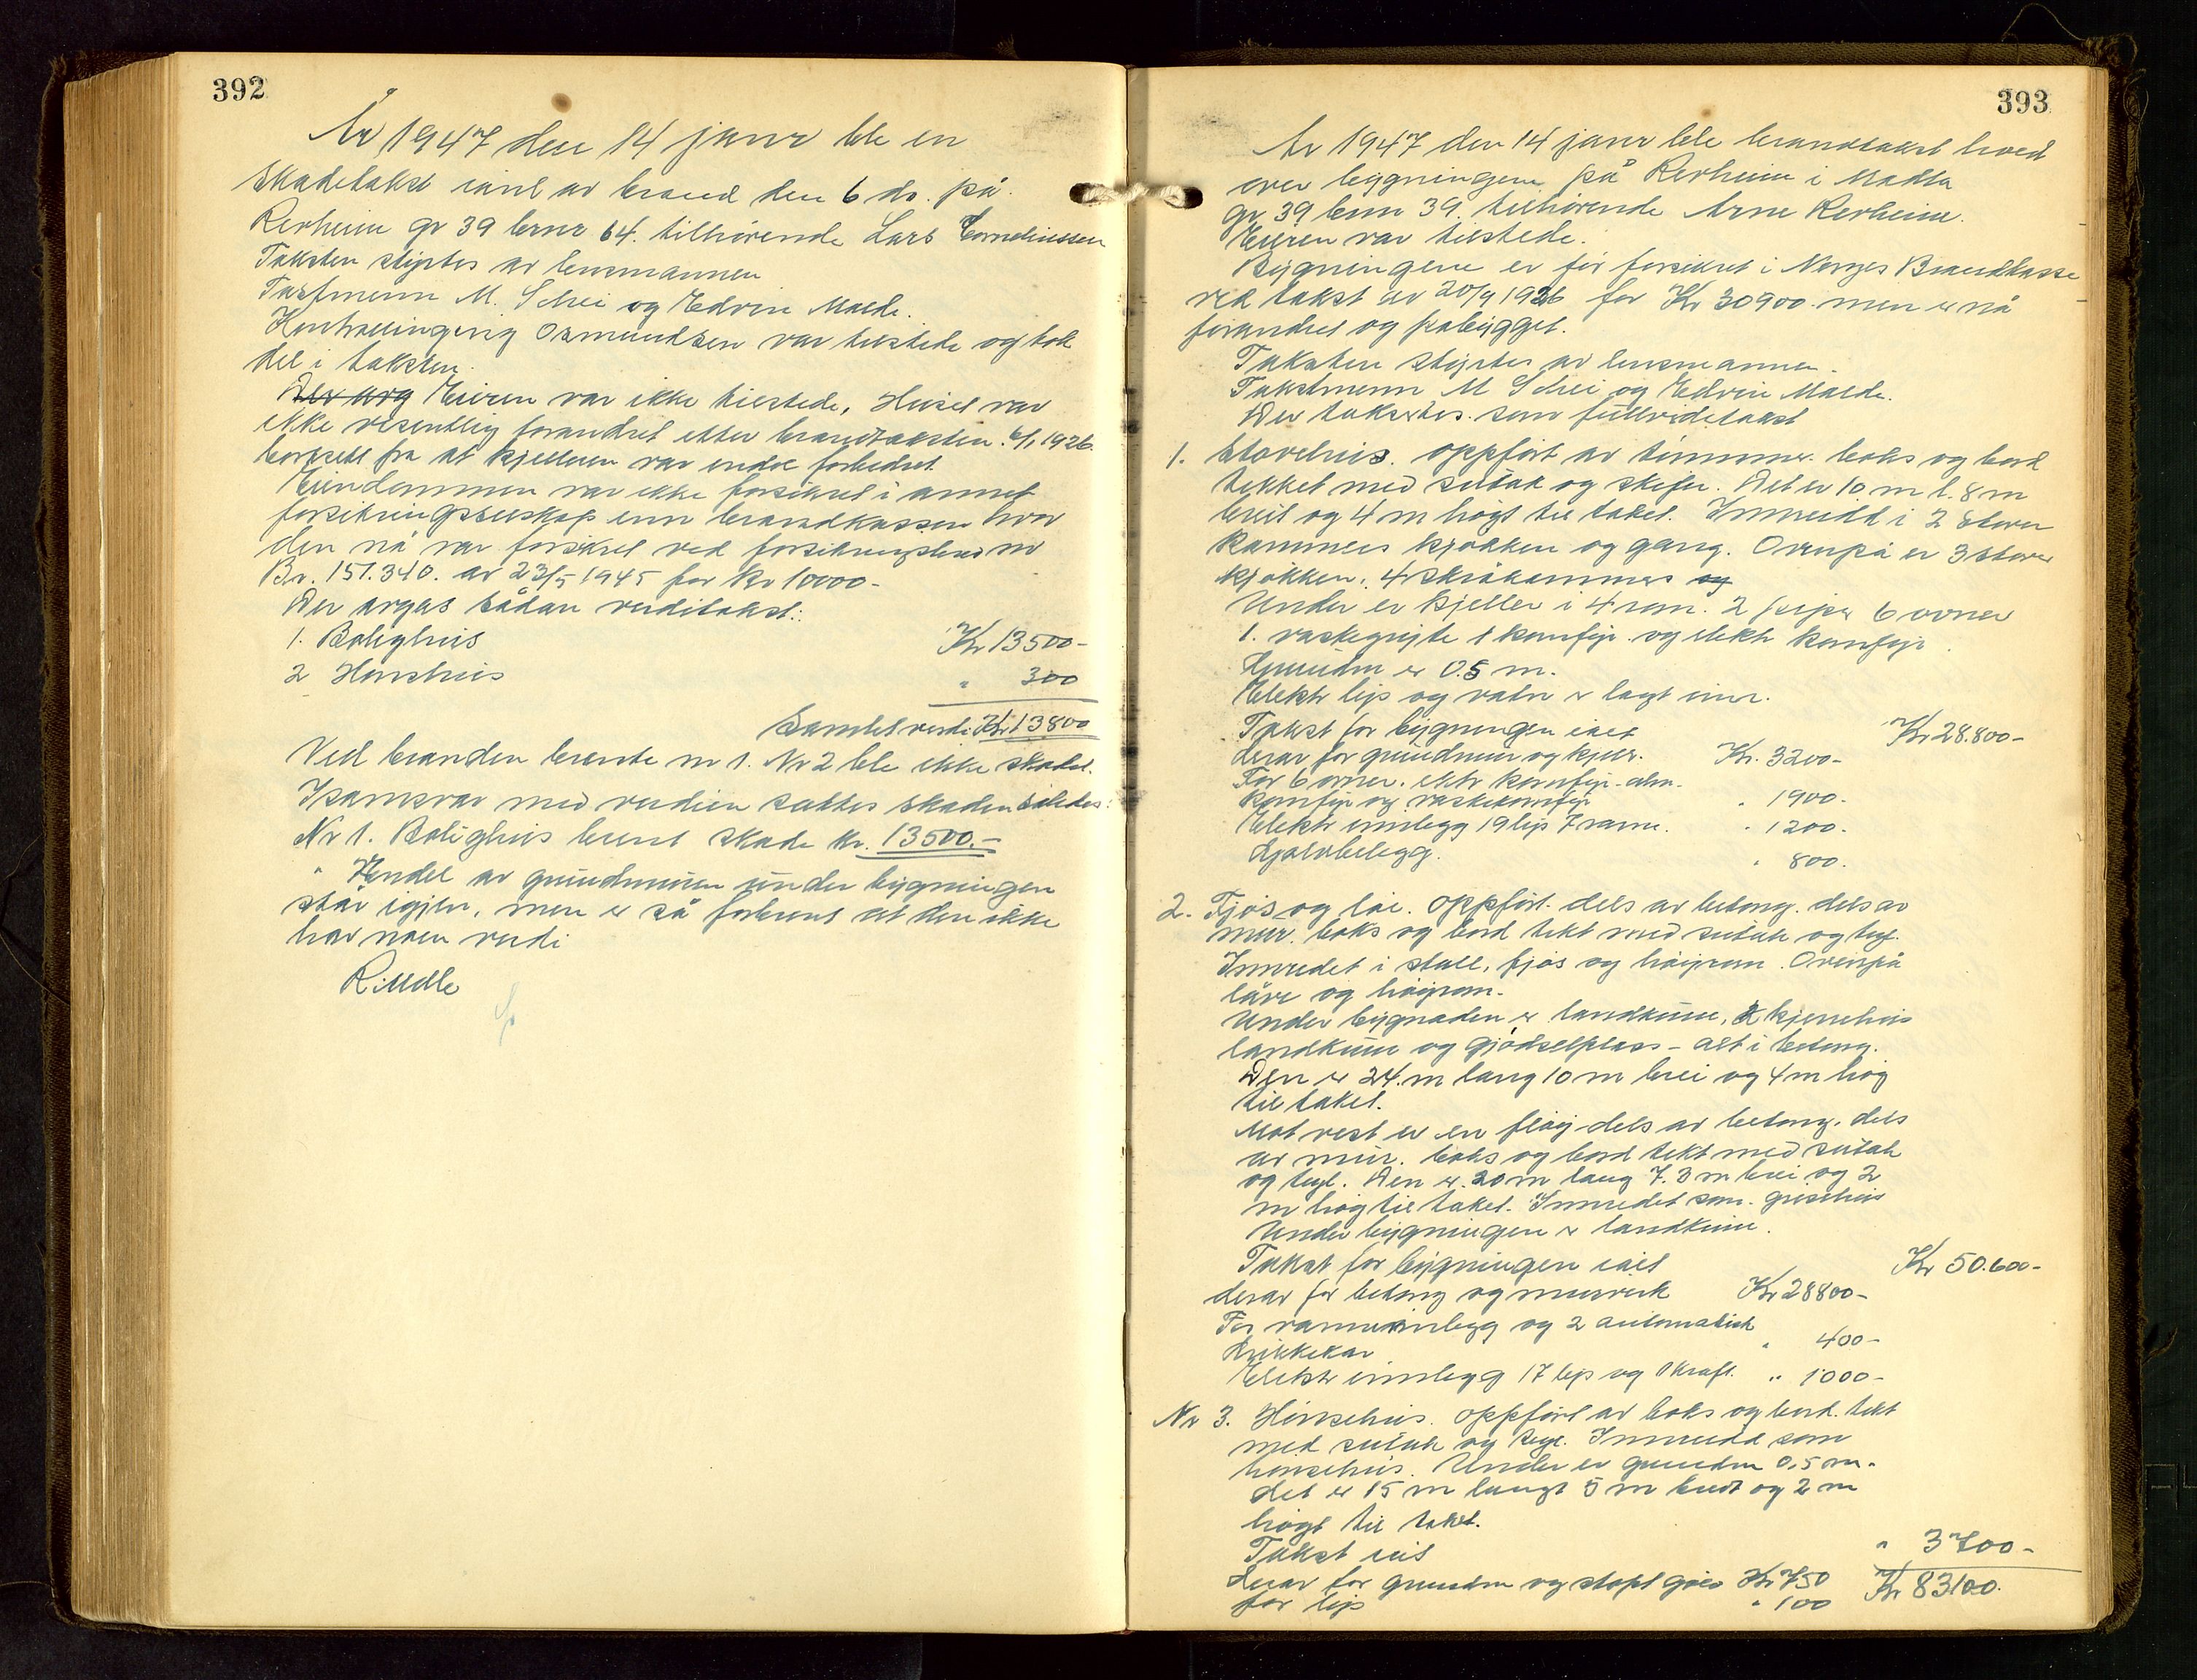 392
År 1947 den 14 janr ble en
skadetakst i anl av brand den 6 ds. på
Revheim gr 39 brnr 64. tilhørende Lars Corneliussen
Taksten styrtes av lensmannen
M. Schei og Edvin Malde.
Osmundsen var tilstede og tok
del i taksten.
Eieren var ikke tilstede, Huset var
ikke vesentlig forandret etter brandtaksten 6/1 1926
bortsett fra at kjelleren var endel forbedret
Eiendommen var ikke forsikret i annet
forsikringsselskap enn brandkassen hvor
den nå var forsikret ved forsikringsbevis nr
Br. 151.340. av 23/5 1945 for kr 10000-
Der avgas sådan verditakst:
1. Bolighus Kr 13500-
2 Hønshus " 300
Samlet verdi Kr 13800
Ved branden brente nr 1. Nr 2 ble ikke skadet.
I samsvar med verdien settes skaden således:
Nr 1. Bolighus brent skade kr. 13500.-
" Endel av grundmuren under bygningen
står igjen, men er så forbrent at den ikke
har noen verdi
R. Malde
393
År 1947 den 14 janr ble brandtakst hved
over bygningene på Revheim i Madla
gr. 39 brnr 39. tilhørende Arne Revheim.
Eieren var tilstede.
Bygningene er før forsikret i Norges Brandkasse
ved takst av 20/4 1926 for Kr 30900. men er nå
forandret og påbygget.
Taksten styrtes av lensmannen.
Takstmenn M Schei og Edvin Malde.
Der taksertes som fullverditakst
1. Stovehus. oppført av tømmer boks og bord
tekket med sutak og skifer. Det er 10 m l. 8 m
breit og 4 m høgt til taket. Innredd i 2 stover
kammers kjøkken og gang. Ovenpå er 3 stover
kjøkken. 4 skråkammers og
Under er kjeller i 4 rom. 2 piper 6 ovner
1. vaskegryte 1 komfyr og elektr komfyr.
Grundm er 0.5 m.
Elektr lys og vatn er lagt inn.
Takst for bygningen i alt Kr 28.800-
derav for grundmur og kjell. Kr. 3200-
For 6 ovner. elektr komfyr. alm.
komfyr og vaskekomfyr " 1900-
Elektr innlegg 19 lys 7 varme. " 1200.
Golvbelegg. " 800.
2. Fjøs og løe. oppført dels av betong. dels av
mur. boks og bord tekt med sutak og tegl.
Innredet i stall, fjøs og høyrom. Ovenpå
låve og høyrom.
Under bygnaden er landkum, 2 kjerrehus
landkum og gjødselplass - alt i betong.
Den er 24 m lang 10 m brei og 4 m høg
til taket.
Mot vest er en fløy dels av betong. dels
av mur. boks og bord tekt med sutak
og tegl. Den er 20 m lang 7.3 m brei og 2
m høg til taket. Innredet som grisehus
Under bygningen er landkum.
Takst for bygningen i alt Kr 50.600-
derav for betong og murverk Kr 28800-
For vanninnlegg og 2 automatisk
drikkekar " 400-
Elektr innlegg 17 lys og 1 kraft. " 1000-
Nr 3. Hønsehus. oppført av boks og bord. tekt
med sutak og tegl. Innredd som
hønsehus. Under er grundm 0,5 m.
det er 15 m langt 5 m breit og 2 m
høgt til taket.
Takst i alt " 3700-
derav for grundm og støpt golv Kr 750 Kr 83100.
for lys " 100